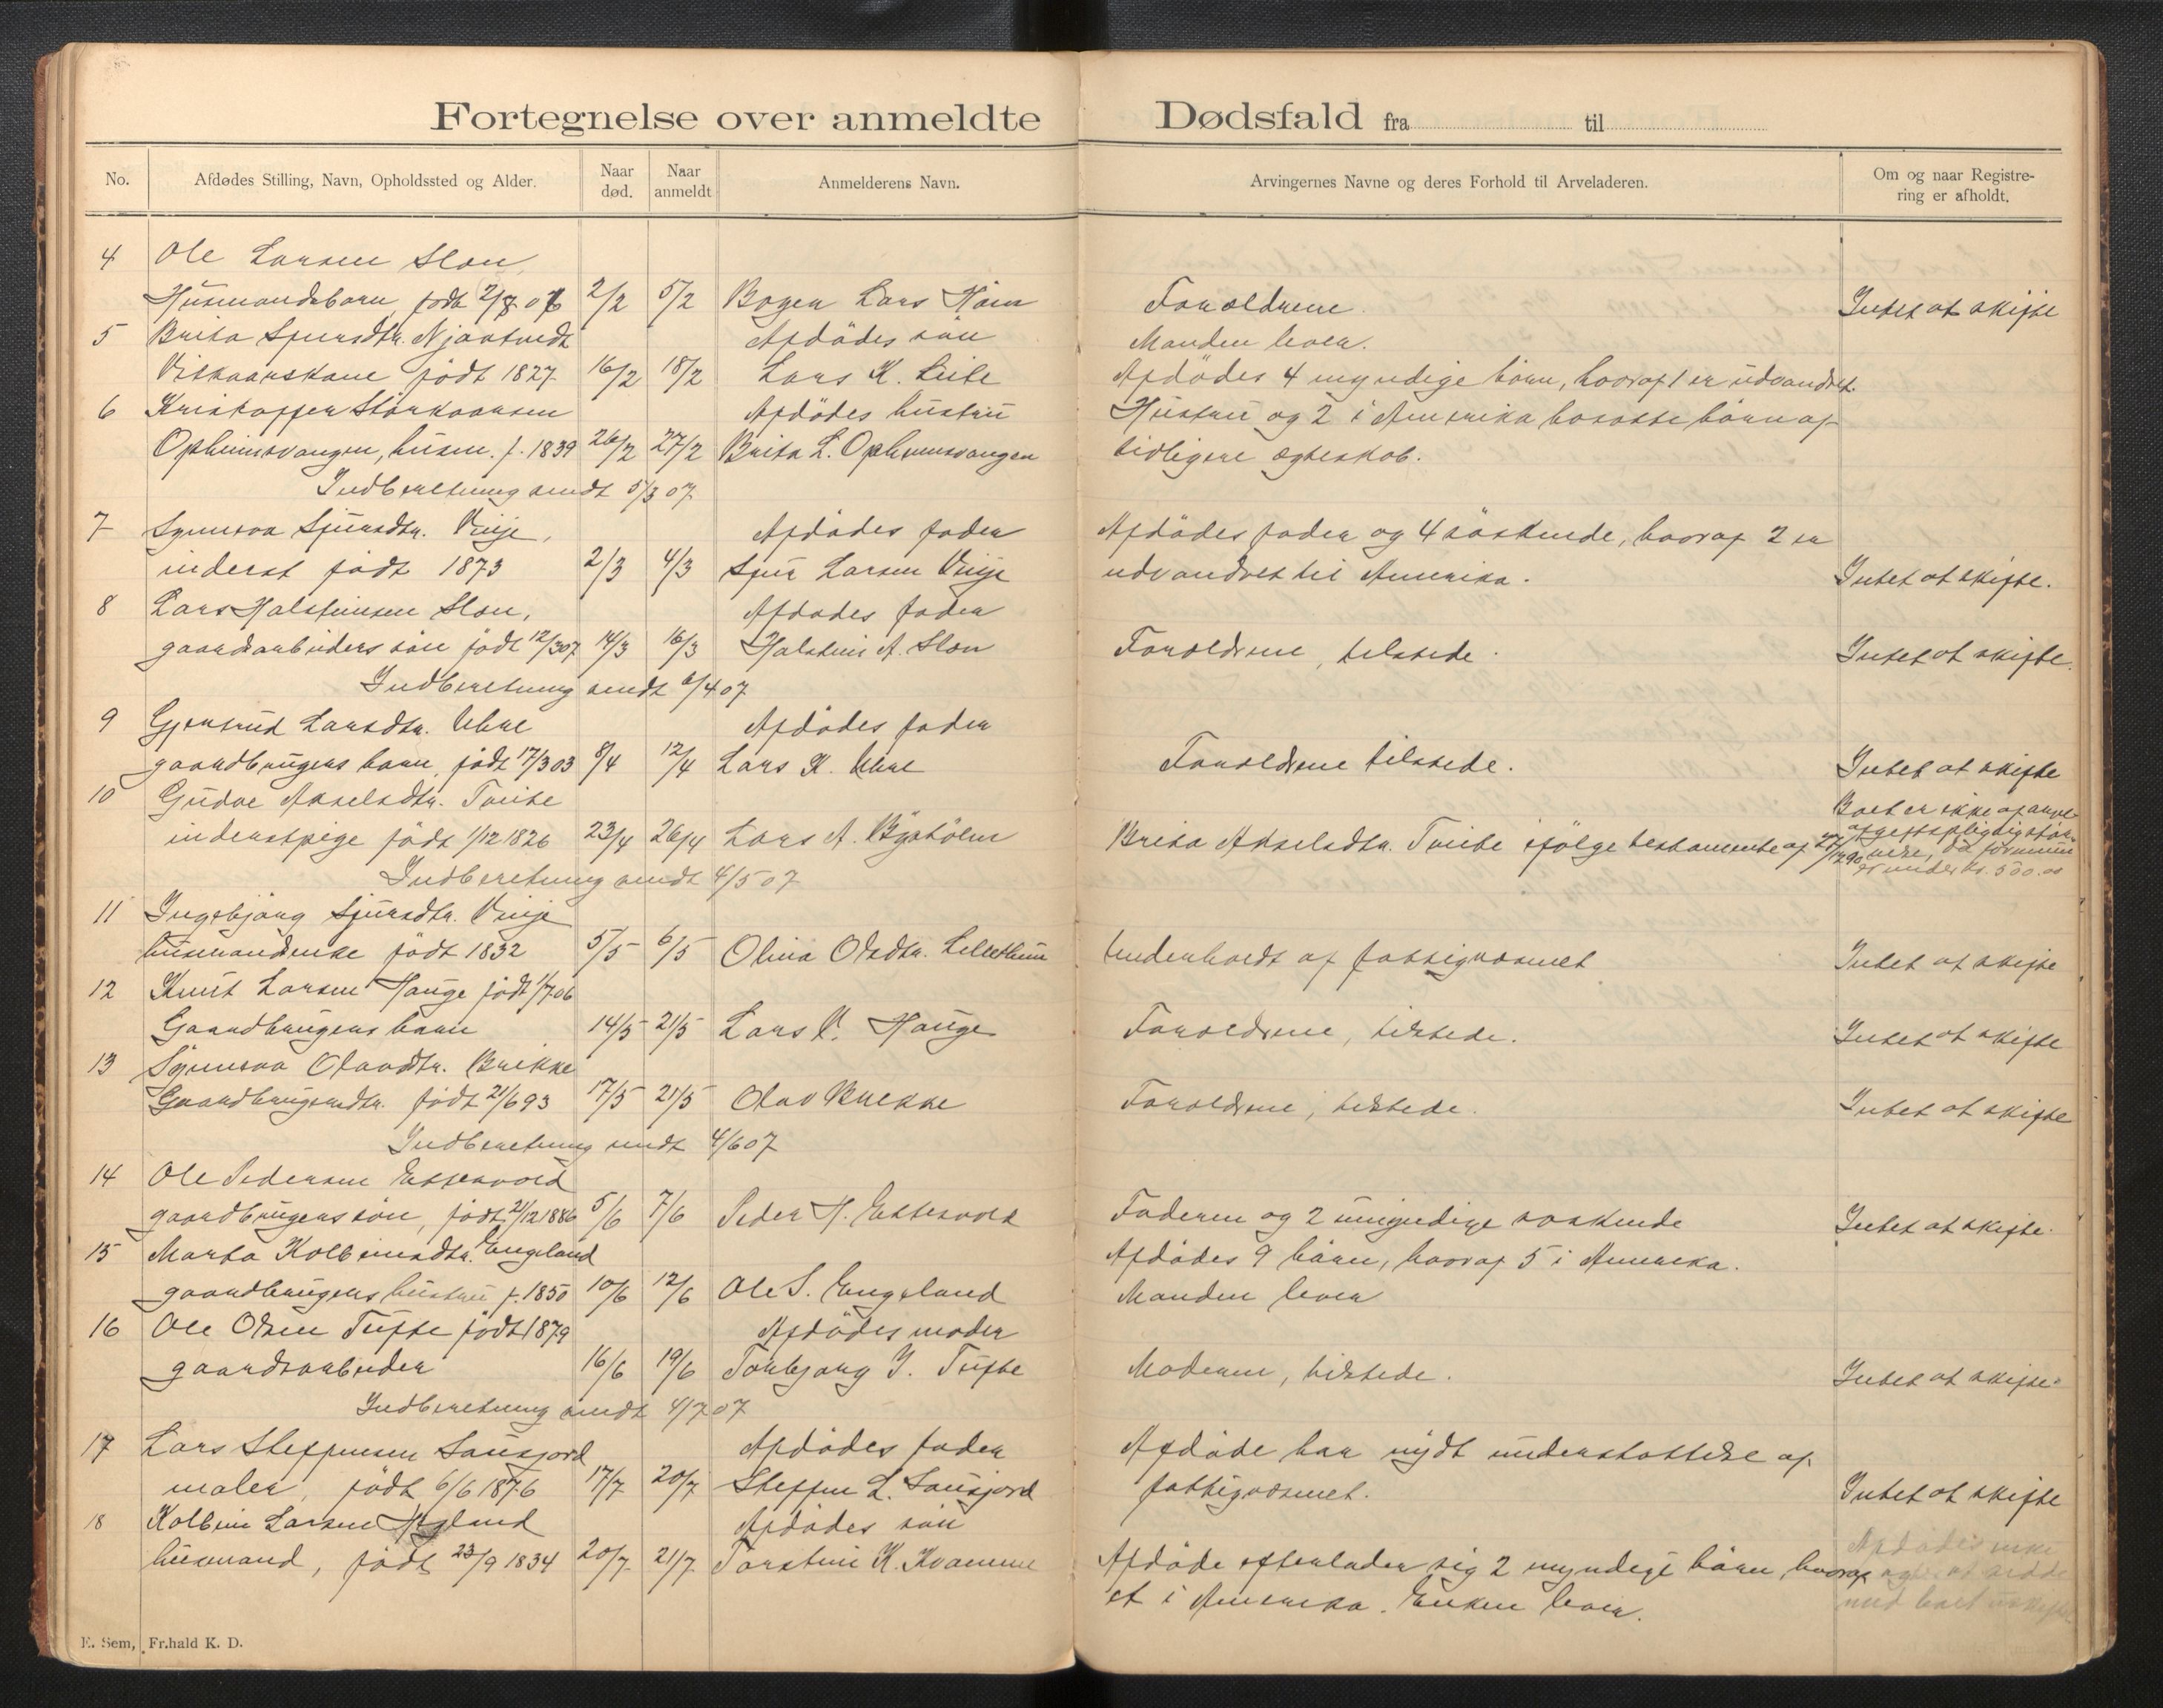 Fortegnelse over anmeldte Dødsfald fra til
No. Afdødes Stilling, Navn, Opholdssted og Alder. Naar død. Naar anmeldt Anmelderens Navn. Arvingernes Navne og deres Forhold til Arveladeren. Om og naar Registrering er afholdt.
4 Ole Larsen Slon
Husmandsbarn, født 2/2 5/2 Bogen Lars Forældrene. Intet at skifte
5 Brita Sjursdtr. Njaatvedt Afdødes søn Manden lever.
født 1827 16/2 18/2 Lars K. Leite Afdødes 4 myndige børn, hvoraf 1 er udvandret.
6 Kristoffer Størkaarsen Afdødes hustru Hustru og 2 i Amerika bosatte børn af
Opheimsvangen, husm. f. 1839 26/2 27/2 Brita L. Opheimsvangen tidligere ægteskab.
Indberetning sendt 5/3 07
7 Synneva Sjursdtr. Vinje, Afdødes fader Afdødes fader og 4 søskende, hvoraf 2 er
inderst født 1873 2/3 4/3 Sjur Larsen Vinje udvandret til Amerika. Intet at skifte.
8 Lars Halsteinsen Slon, Afdødes fader
gaardsarbeiders søn født 12/3 07 14/3 16/3 Halstein A. Slon Forældrene, tilstede. Intet at skifte.
Indberetning sendt 6/4 07
9 Gjertrud Larsdtr. Uhre Afdødes fader
gaardbrugers barn, født 17/3 03 8/4 12/4 Lars K. Uhre Forældrene tilstede. Intet at skifte
10 Gudve Akselsdtr. Tveite Boet er ikke af arve-
inderstpige født 1/12 1826 23/4 26/4 Lars A. Brita Akselsdtr. Tveite ifølge testamente af afgiftspligtig stør-
relse, da formuen
er under kr. 500.00
Indberetning sendt 4/5 07
11 Ingebjørg Sjursdtr. Vinje
husmandsenke født 1832 5/5 6/5 Olina Olsdtr. Underholdt af fattigvæsenet Intet at skifte
12 Knut Larsen Hauge født 1/7 06
Gaardbrugers barn 14/5 21/5 Lars K. Hauge Forældrene, tilstede. Intet at skifte
13 Synneva Olavsdtr. Brekke
Gaardbrugersdtr. født 21/6 93 17/5 21/5 Olav Brekke Forældrene, tilstede. Intet at skifte
Indberetning sendt 4/6 07
14 Ole Pedersen Espesvold
gaardbrugers søn, født 21/12 1886 5/6 7/6 Peder H. Faderen og 2 umyndige søskende Intet at skifte.
15 Marta Kolbeinsdtr. Engeland Afdødes 9 børn, hvoraf 5 i Amerika.
gaardbrugers hustru f. 1850 10/6 12/6 Ole S. Engeland Manden lever
16 Ole Olsen Tufte født 1879 Afdødes moder
gaardsarbeider 16/6 19/6 Torbjørg I. Tufte Moderen, tilstede. Intet at skifte.
Indberetning sendt 4/7 07
17 Lars Steffensen Sausjord Afdødes fader Afdøde har nydt understøttelse af
maler, født 6/6 1876 17/7 20/7 Steffen L. Sausjord fattigvæsenet. Intet at skifte
18 Kolbein Larsen Hegland Afdødes søn Afdødes enke
husmand, født 23/9 1834 20/7 21/7 Torstein K. Kvamme Afdøde efterlader sig 2 myndige børn, hvoraf
et i Amerika. Enken lever.
E. Sem, Fr.hald K. D.